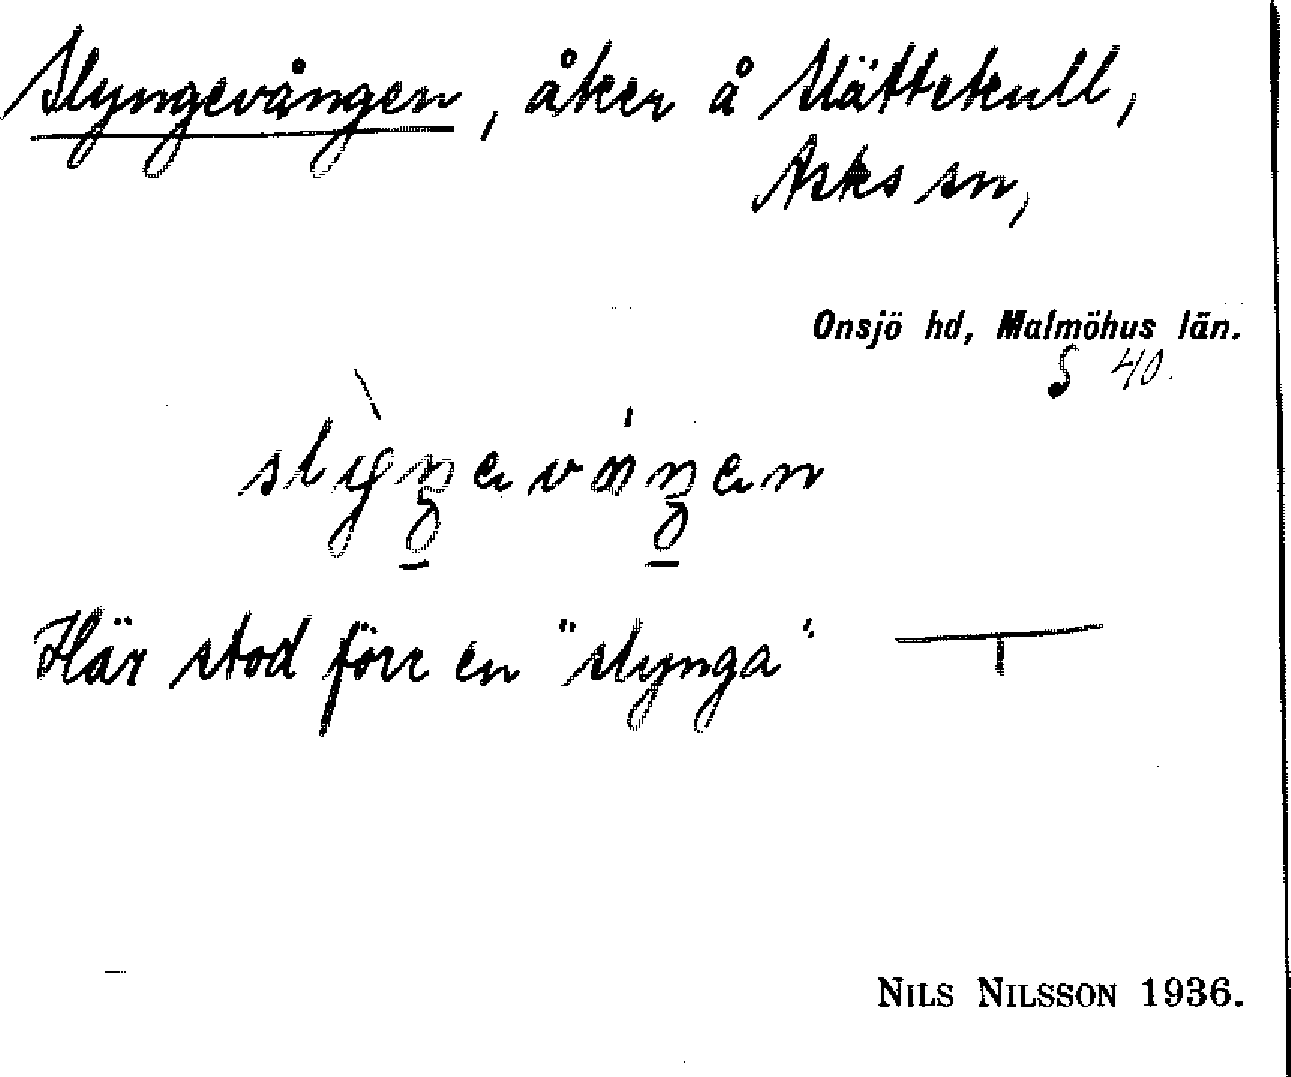 Slyngevången, åker å Slättekull,
Asks sn,
Onsjö hd, Malmöhus län.
S 40.
Här stod förr en "slynga".
NILS NILSSON 1936.